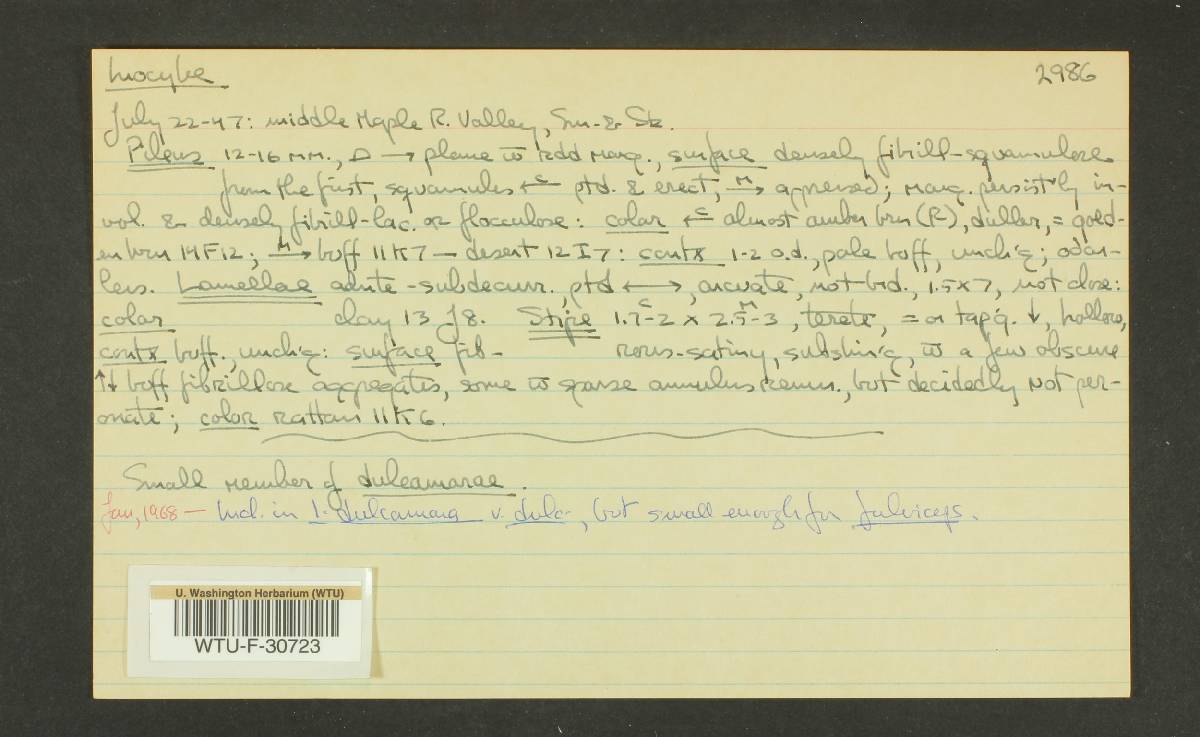 Inocybe 2986
July 22-47: middle Maple R. Valley, Sm. & Stz.
Pileus 12-16 mm., △ → plane w̄ rdd marg., surface densely fibrill-squamulose
from the first, squamules ←c ptd. & erect, M→ appressed; marg. persist'ly in-
vol. & densely fibrill-lac. or flocculose: color ←c almost amber brn (R), duller, = gold-
en brn 14F12; M→ buff 11K7 — desert 12I7: contx 1-2 o.d., pale buff, unch'g; odor-
less. Lamellae adnate-subdecurr., ptd ←→, arcuate, not brd., 1.5x7, not close:
color clay 13J8. Stipe 1.7-2 x 2.5-3, terete, = or tap'g. ↓, hollow,
contx buff., unch'g: surface fib- rous-satiny, subshin'g, w̄ a few obscure
↑↓ buff fibrillose aggregates, some w̄ sparse annulus remn., but decidedly not per-
onate; color rattan 11K6.
Small member of dulcamarae.
Jan, 1968 — Incl. in I. dulcamara v. dulc., but small enough for fulviceps.
U. Washington Herbarium (WTU)
WTU-F-30723